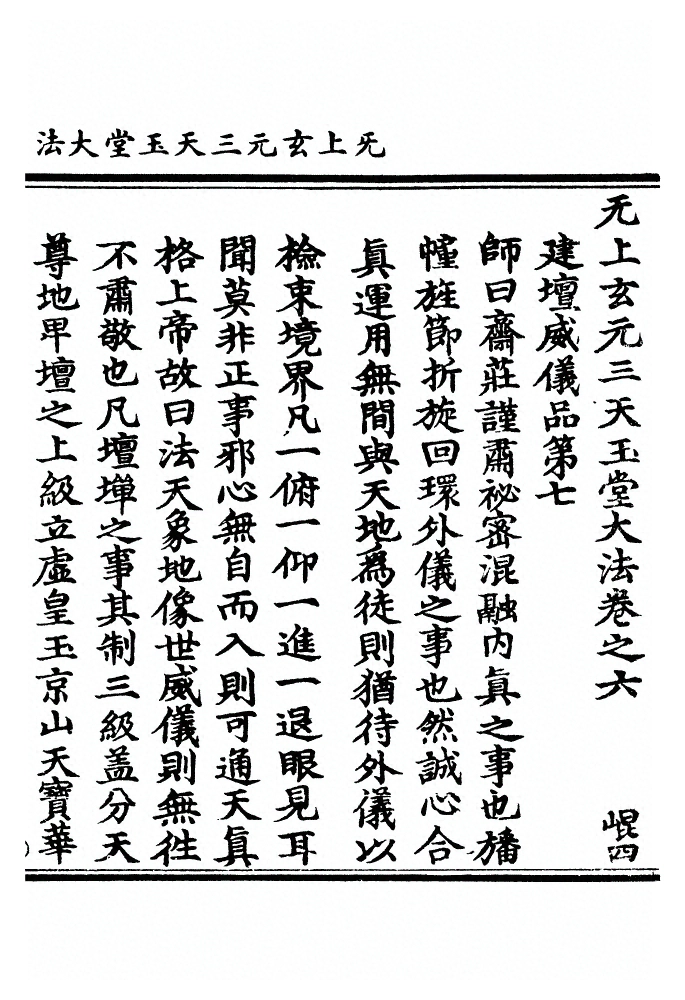 无上玄元三天玉堂大法
无上玄元三天玉堂大法卷之六 崐四
建壇威儀品第七
師曰齋莊謹肅祕密混融內眞之事也旛
幢旌節折旋回環外儀之事也然誠心合
眞運用無間與天地爲徒則猶待外儀以
檢束境界凡一俯一仰一進一退眼見耳
聞莫非正事邪心無自而入則可通天眞
格上帝故曰法天象地像世威儀則無徃
不肅敬也凡壇墠之事其制三級盖分天
尊地卑壇之上級立虛皇玉京山天寶華